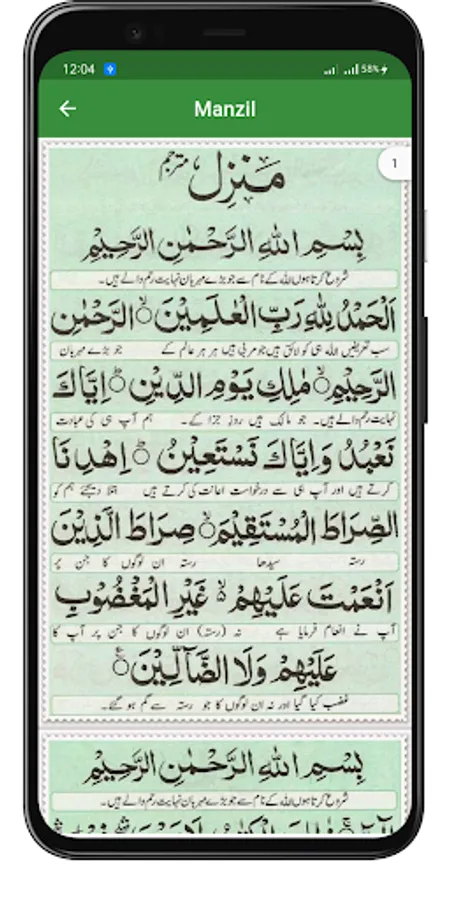 12:04
58%
Manzil
1
مَنْزِل مترجم
بِسْمِ اللهِ الرَّحْمٰنِ الرَّحِيْمِ
شروع کرتا ہوں اللہ کے نام سے جو بڑے مہربان نہایت رحم والے ہیں۔
اَلْحَمْدُ لِلّٰهِ رَبِّ الْعٰلَمِيْنَ ۙ الرَّحْمٰنِ
سب تعریفیں اللہ ہی کو لائق ہیں جو مربی ہیں ہر ہر عالم کے جو بڑے مہربان
الرَّحِيْمِ ۙ مٰلِكِ يَوْمِ الدِّيْنِ ؕ اِيَّاكَ
نہایت رحم والے ہیں۔ جو مالک ہیں روز جزا کے۔ ہم آپ ہی کی عبادت
نَعْبُدُ وَاِيَّاكَ نَسْتَعِيْنُ ؕ اِهْدِنَا
کرتے ہیں اور آپ ہی سے درخواست اعانت کی کرتے ہیں بتلا دیجئے ہم کو
الصِّرَاطَ الْمُسْتَقِيْمَ ۙ صِرَاطَ الَّذِيْنَ
رستہ سیدھا رستہ ان لوگوں کا جن پر
اَنْعَمْتَ عَلَيْهِمْ ۙ غَيْرِ الْمَغْضُوْبِ
آپ نے انعام فرمایا ہے نہ (رستہ) ان لوگوں کا جن پر آپ کا
عَلَيْهِمْ وَلَا الضَّآلِّيْنَ ۠
غضب کیا گیا اور نہ ان لوگوں کا جو رستہ سے گم ہو گئے۔
بِسْمِ اللهِ الرَّحْمٰنِ الرَّحِيْمِ
شروع کرتا ہوں اللہ کے نام سے جو بڑے مہربان نہایت رحم والے ہیں۔